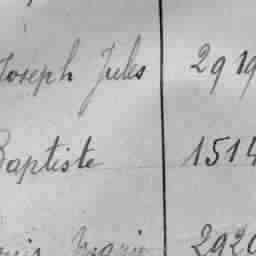 Joseph Jules 2919
Baptiste 1514
Marie 292